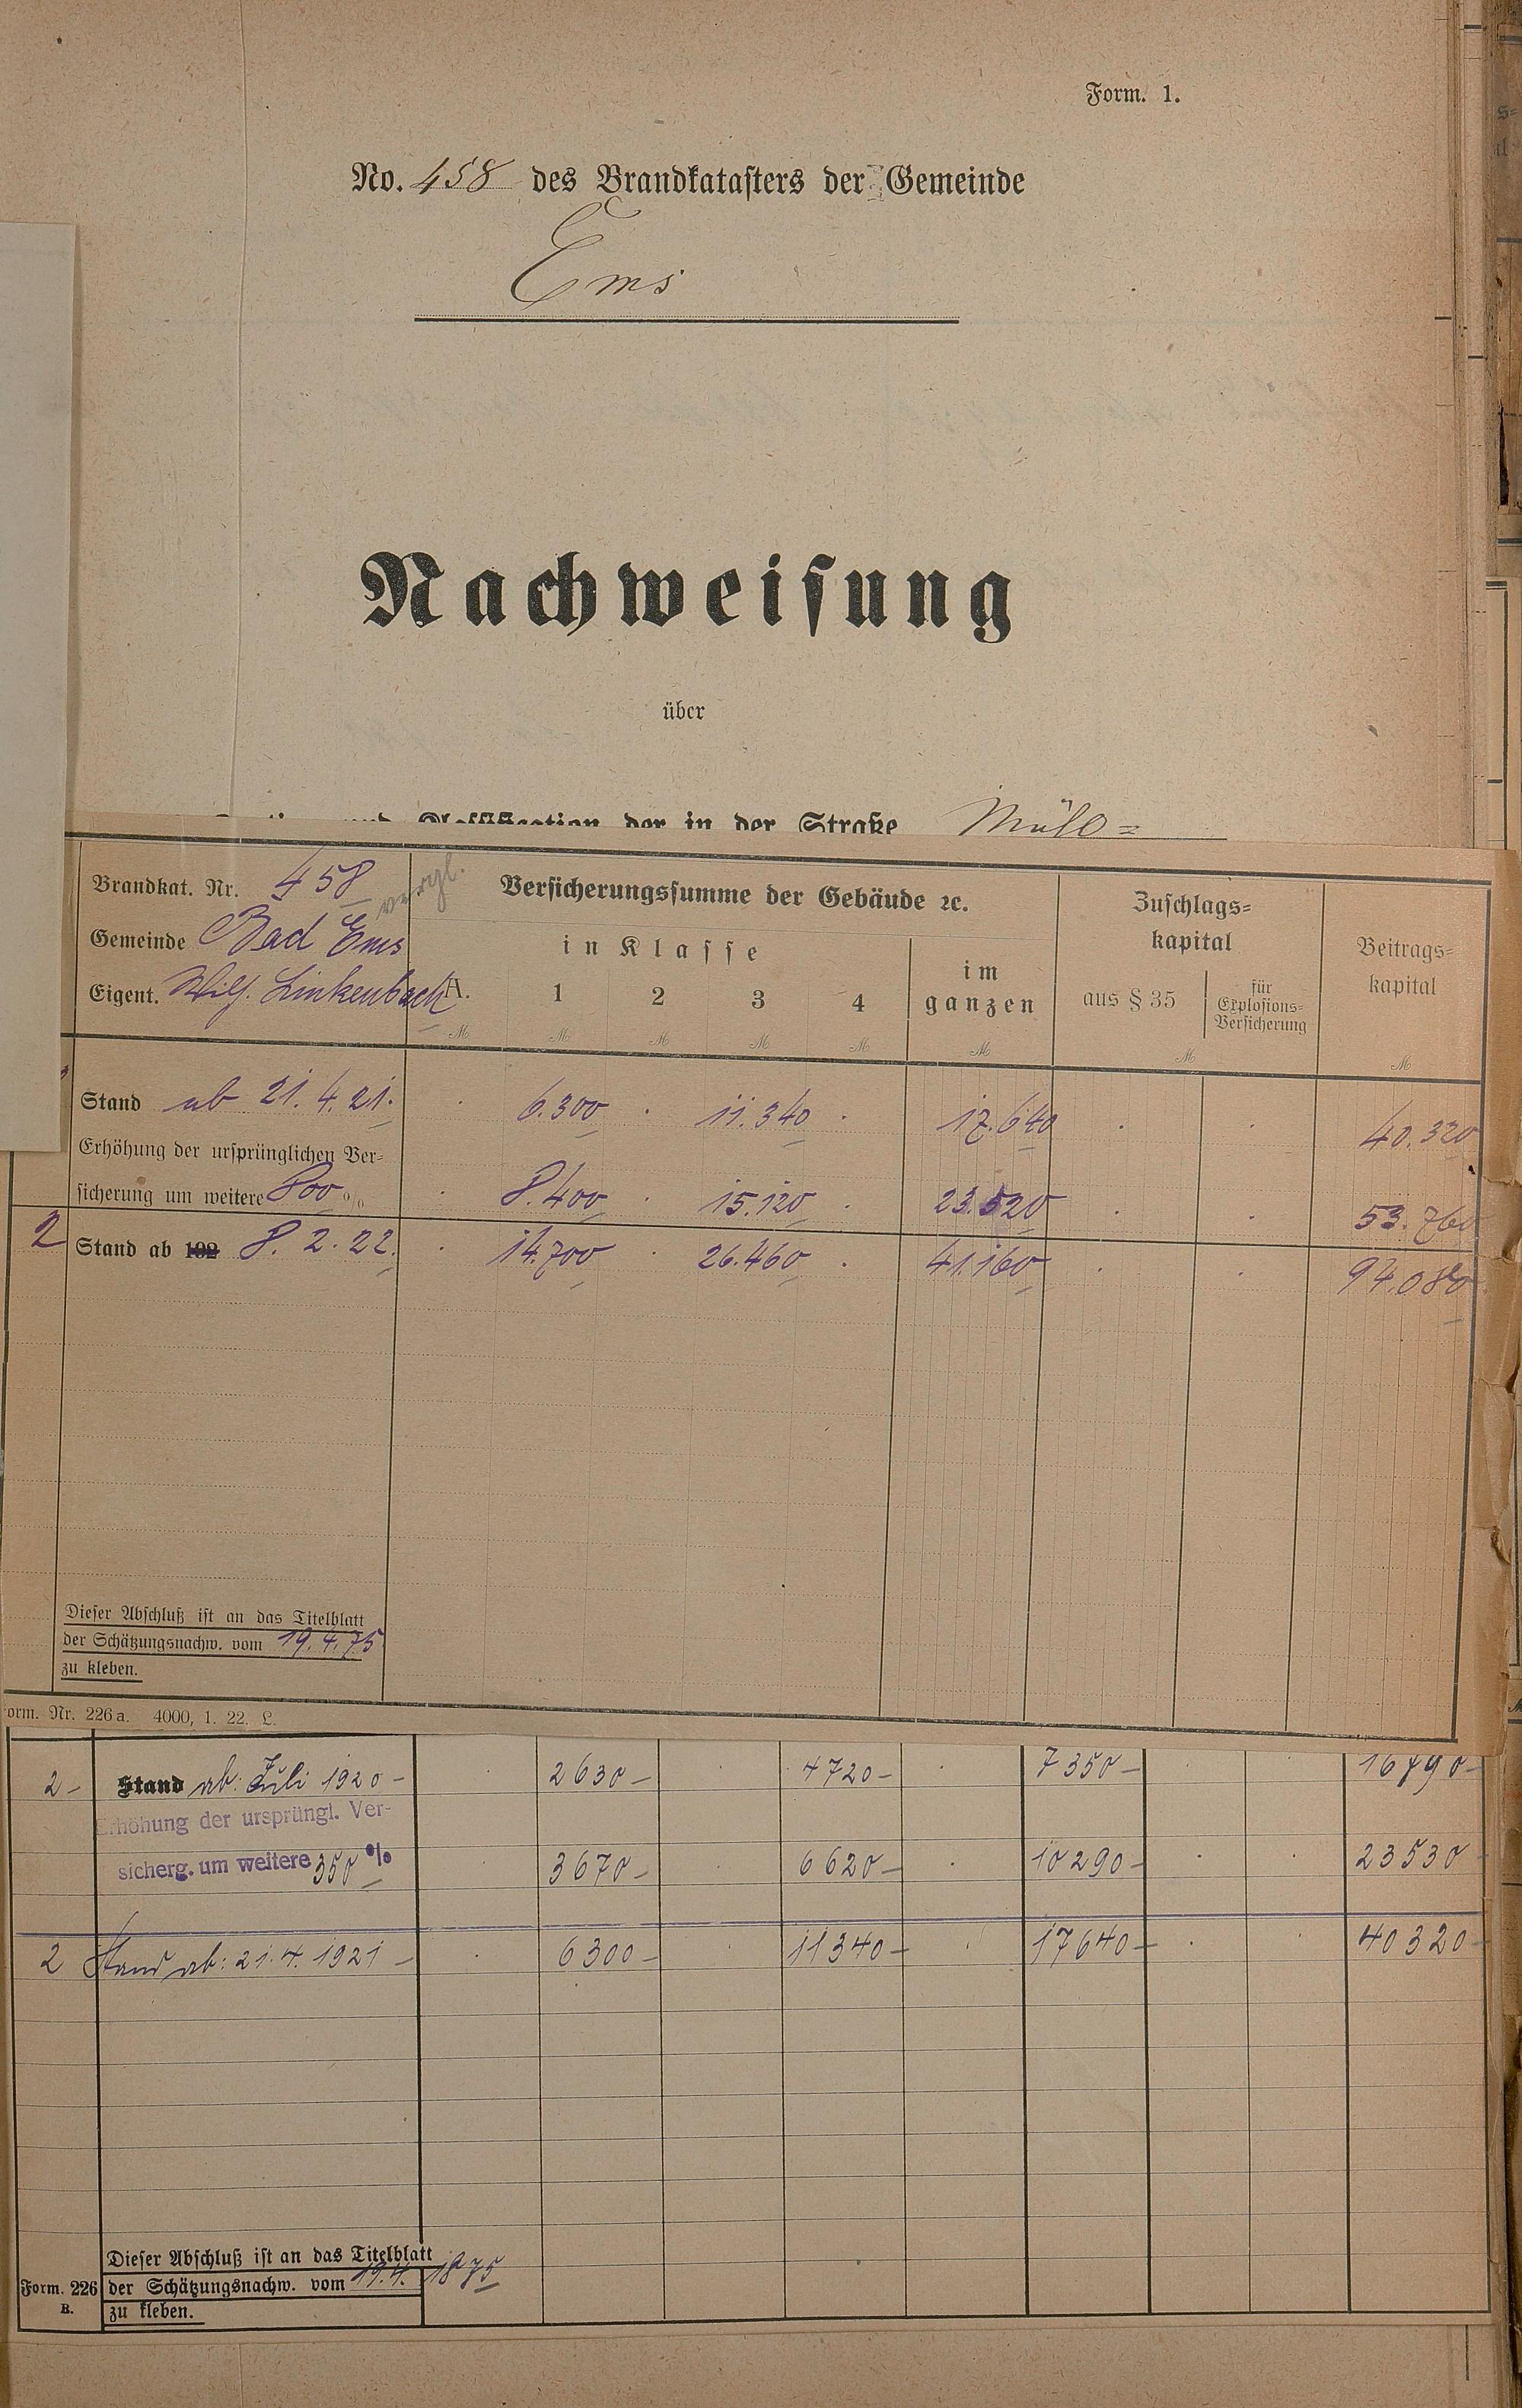 Form. 1.
No. 458 des Brandkatasters der Gemeinde
Ems
Nachweisung
über
der in der Straße
Brandkat. Nr. 458 vergl.
Gemeinde Bad Ems
Eigent. Wilh. Linkenbach
Versicherungssumme der Gebäude ꝛc.
in Klasse
A. 1 2 3 4
im ganzen
Zuschlags=
kapital
aus § 35
für
Explosions=
Versicherung
Beitrags=
kapital
M M M M M M M M
Stand ab 21. 4. 21. 6.300 11.340 17.640 40.320
Erhöhung der ursprünglichen Ver=
sicherung um weitere 800 % 8.400 15.120 23.520 53.760
2 Stand ab 192 8. 2. 22. 14.700 26.460 41.160 94.080
Dieser Abschluß ist an das Titelblatt
der Schätzungsnachw. vom 19. 4. 75
zu kleben.
orm. Nr. 226 a. 4000, 1. 22. L.
2 - Stand ab: Juli 1920 - 2630 - 4720 - 7350 - 16790 -
Erhöhung der ursprüngl. Ver-
sicherg. um weitere 350 % 3670 - 6620 - 10290 - 23530 -
2 Stand ab: 21. 4. 1921 - 6300 - 11340 - 17640 - 40320 -
Dieser Abschluß ist an das Titelblatt
der Schätzungsnachw. vom 19. 4. 1875
zu kleben.
Form. 226
B.